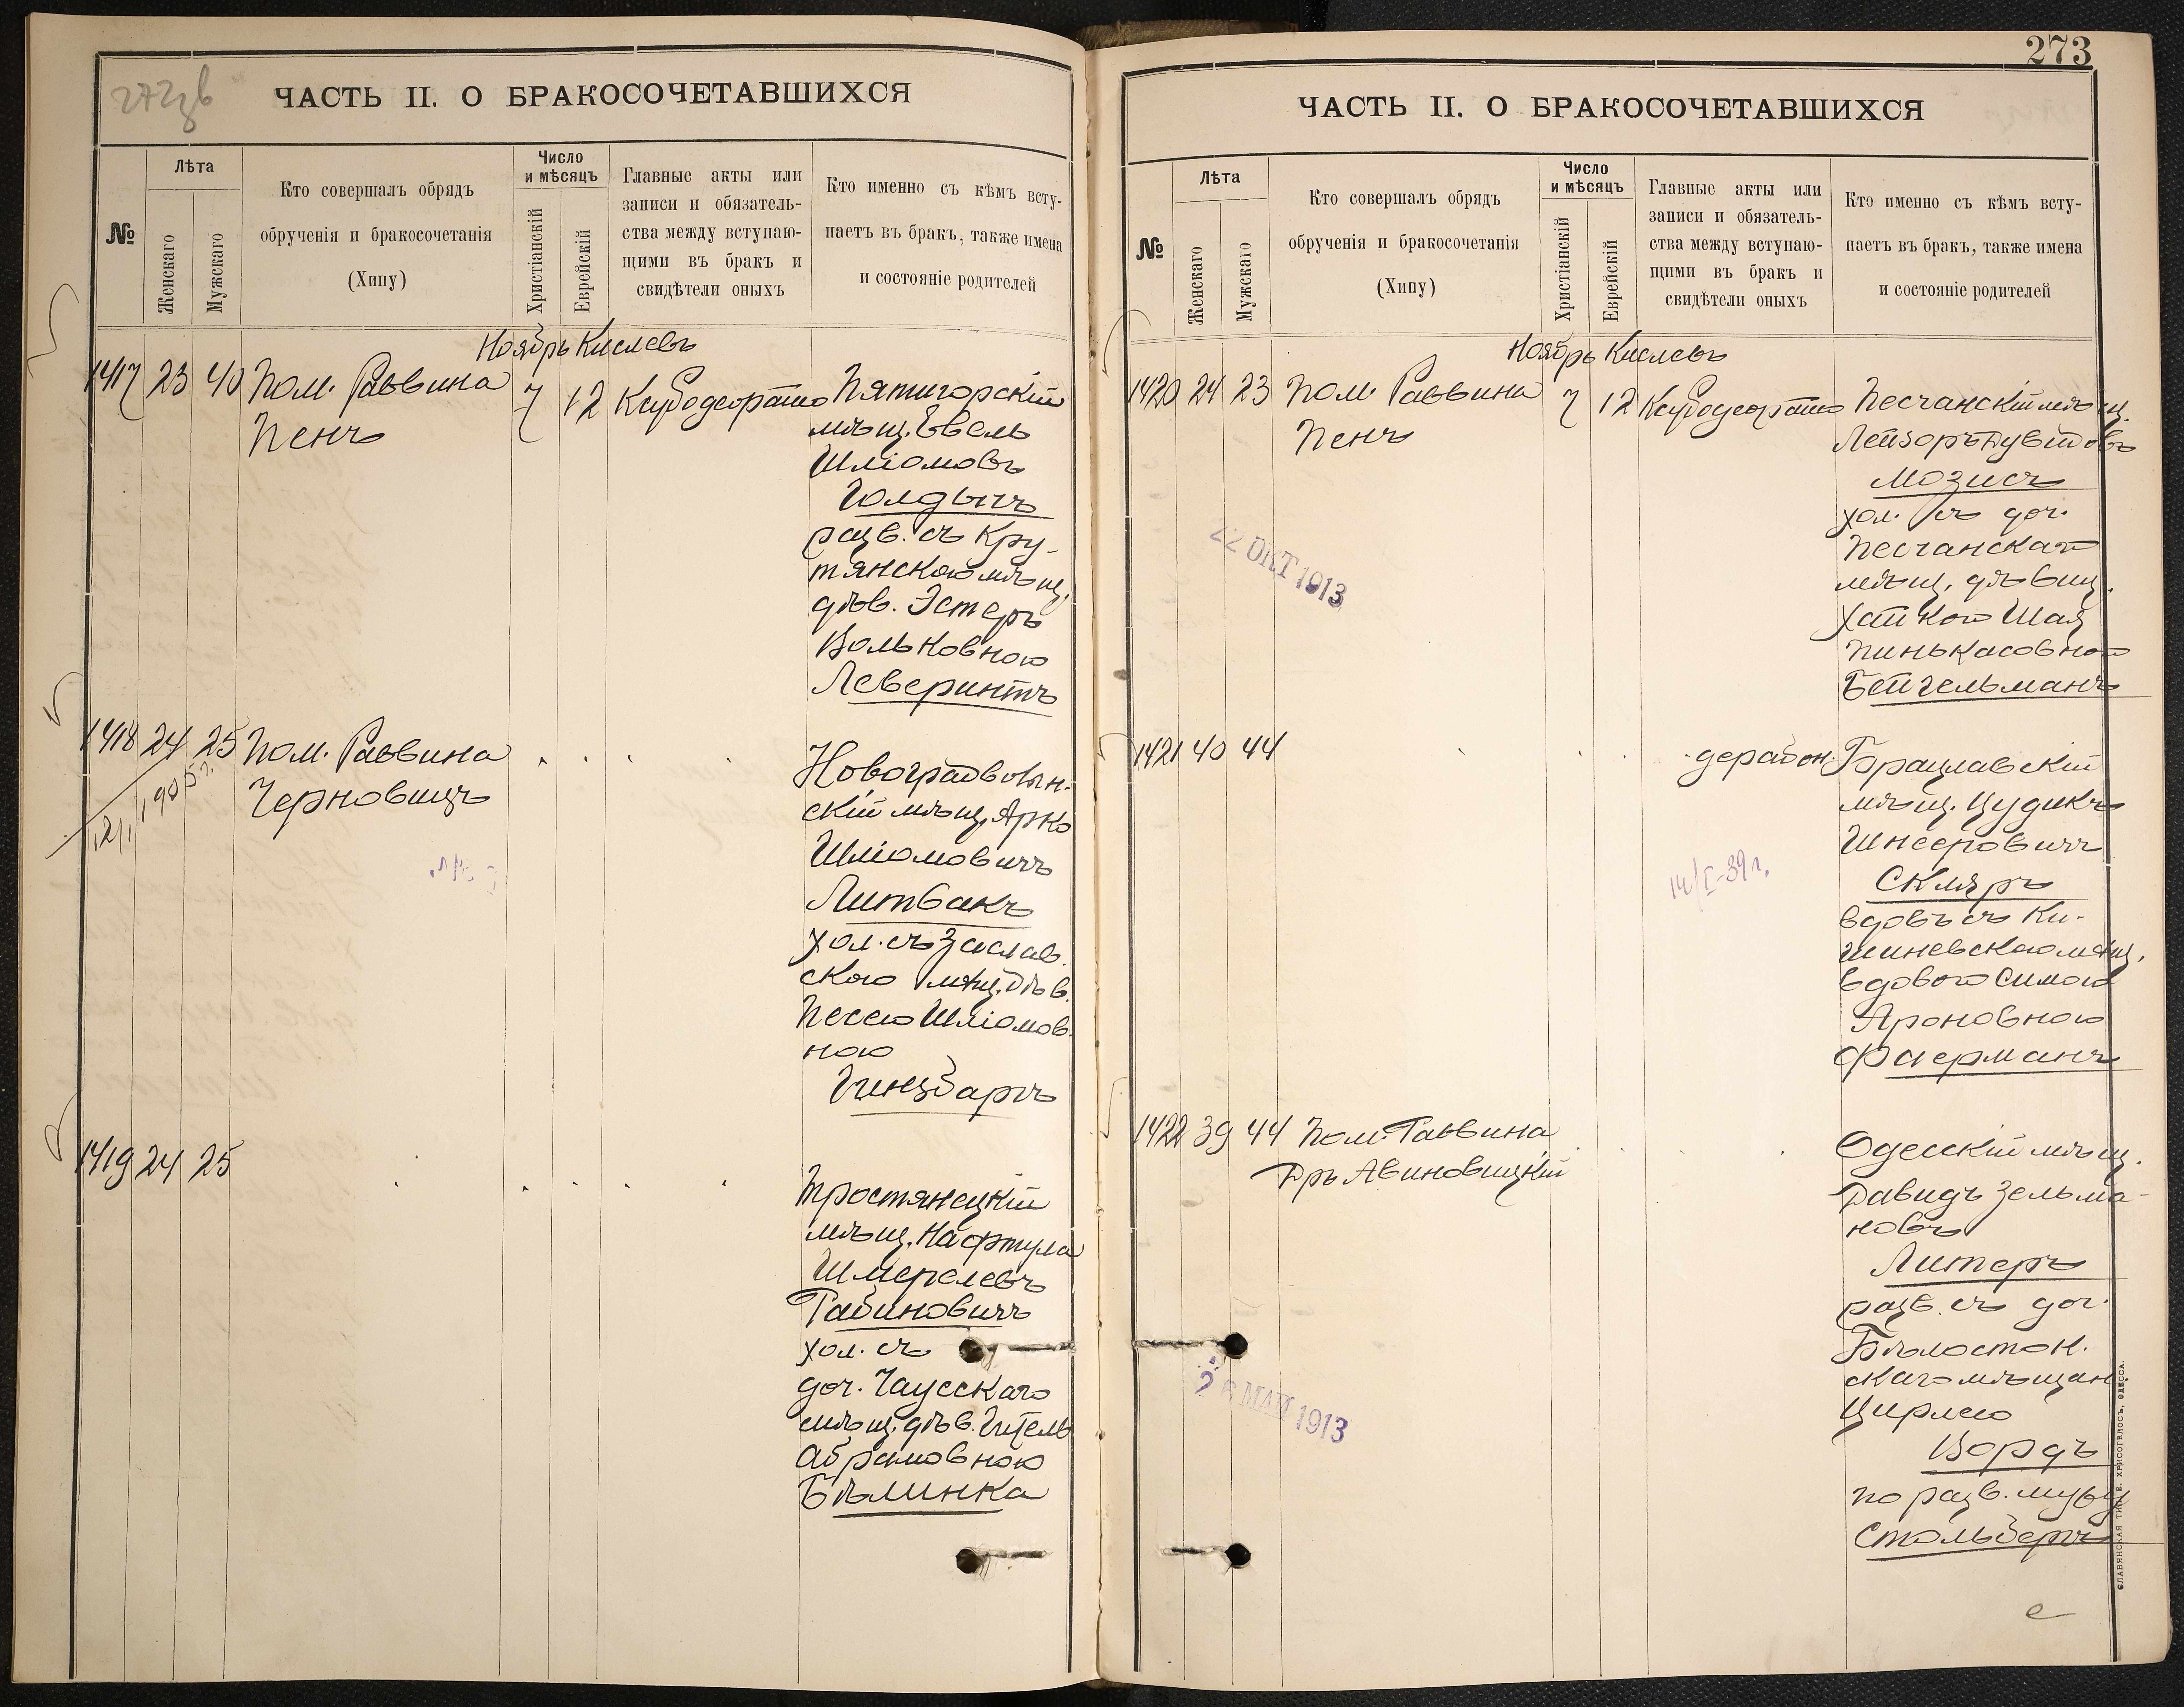 272 об
ЧАСТЬ II. О БРАКОСОЧЕТАВШИХСЯ
№
Лѣта
Женскаго
Мужскаго
Кто совершалъ обрядъ
обрученія и бракосочетанія
(Хипу)
Число
и мѣсяцъ
Христіанскій
Еврейскій
Главные акты или
записи и обязатель-
ства между вступаю-
щими въ бракъ и
свидѣтели оныхъ
Кто именно съ кѣмъ всту-
паетъ въ бракъ, также имена
и состояніе родителей
Ноябрь Кислевъ
1417 23 40 Пом. Раввина
Пенъ
7 12
Пятигорскій
мѣщ. Эвель
Шліомовъ
Голдычъ
разв. съ Кру-
тянскою мѣщ.
дѣв. Эстеръ
Вольковною
Леверинтъ
1418 24 25 Пом. Раввина
Черновицъ
12/I 1905 г.
Новоградволын-
скій мѣщ. Арко
Шліомовичъ
Литвакъ
хол. съ Заслав.
скою мѣщ. дѣв.
Песею Шліомов.
ною
Гинзбаргъ
1419 24 25
Тростянецкій
мѣщ. Нафтула
Шмерелевъ
Рабиновичъ
хол. съ
доч. Чаусскаго
мѣщ. дѣв. Гитель
Абрамовною
Бѣлинка
273
ЧАСТЬ II. О БРАКОСОЧЕТАВШИХСЯ
№
Лѣта
Женскаго
Мужскаго
Кто совершалъ обрядъ
обрученія и бракосочетанія
(Хипу)
Число
и мѣсяцъ
Христіанскій
Еврейскій
Главные акты или
записи и обязатель-
ства между вступаю-
щими въ бракъ и
свидѣтели оныхъ
Кто именно съ кѣмъ всту-
паетъ въ бракъ, также имена
и состояніе родителей
Ноябрь Кислевъ
1420 24 23 Пом. Раввина
Пенъ
7 12
22 ОКТ 1913
Песчанскій мѣщ.
Лейзоръ Дувидовъ
Мозисъ
хол. съ доч.
Песчанскаго
мѣщ. дѣвиц.
Хайкою Шая
Пинькасовною
Бейгельманъ
1421 40 44
14/I-39 г.
Брацлавскій
мѣщ. Цудикъ
Шнееровичъ
Скляръ
вдовъ съ Ки-
шиневскою мѣщ.
вдовою Симою
Ароновною
Фаерманъ
1422 39 44 Пом. Раввина
Др Авиновицкій
26 МАЙ 1913
Одесскій мѣщ.
Давидъ Зельма-
новъ
Литеръ
разв. съ доч.
Бѣлосток.
скаго мѣщан
Цирлею
Вордъ
по разв. мужу
Стольберъ
СЛАВЯНСКАЯ ТИП. Е. ХРИСОГЕЛОСЪ, ОДЕССА.